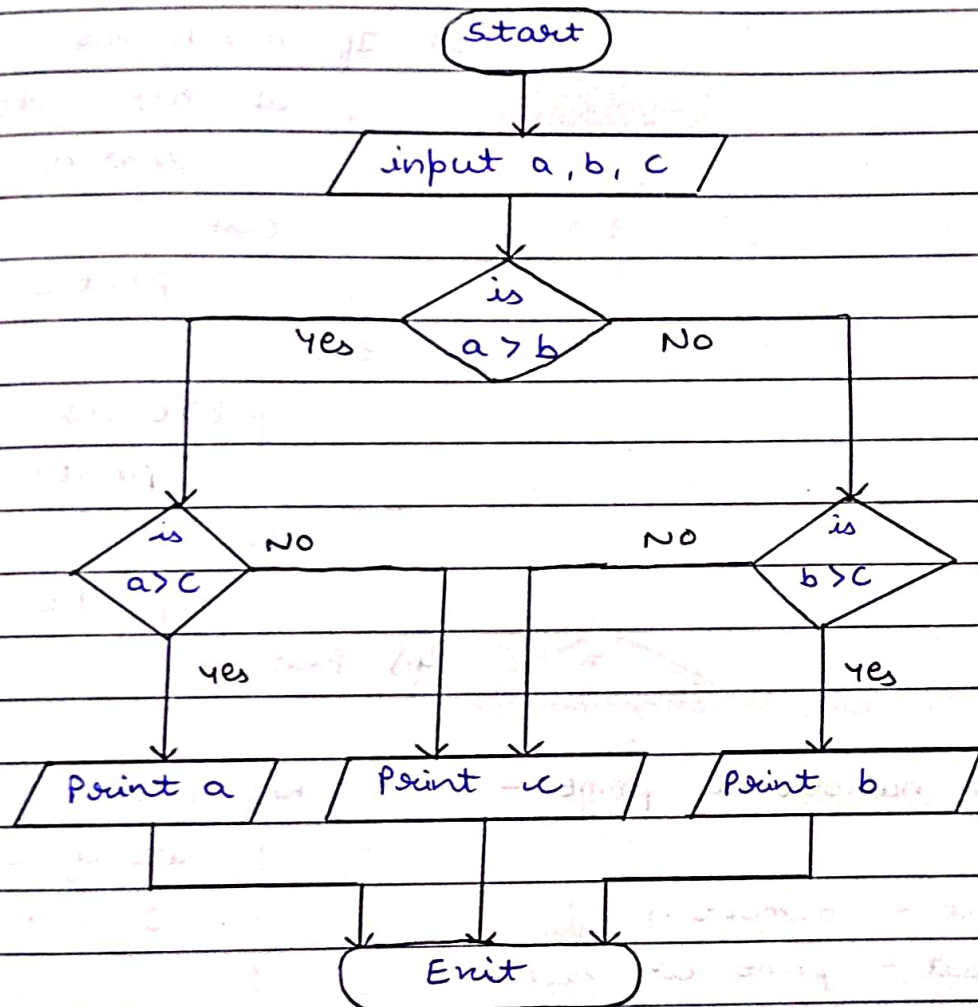 Start
input a, b, c
is
a > b
Yes
No
is
a>c
No
No
is
b >c
Yes
Yes
Print a
Print c
Print b
Exit